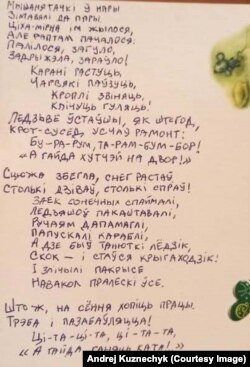 Мышанятачкі ў нары
Зімавалі да пары.
Ціха-мірна ім жылося.
Але раптам пачалося:
Палілося, загуло,
Задрыжэла, зараўло!
Карані растуць,
Чарвякі паўзуць,
Кроплі звіняць,
Клічуць гуляць!
Ледзьве ўстаўшы, як штегод,
Крот-сусед усчаў рамонт:
Бу-ра-рум, та-рам-бум-бор!
«А гайда хутчэй на двор!»
Сцюжа збегла, снег растаў
Столькі дзіваў, столькі спраў!
Заек сонечных спаймалі,
Ледзяшоў пакаштавалі,
Ручаям дапамаглі,
Папускалі караблі,
А дзе быў танюткі лёдзік,
Скок – і стаўся крыгаходзік!
І злічылі пакрысе
Навакол пралескі ўсе.
Што ж, на сёння хопіць працы.
Трэба і пазабаўляцца!
Ці-та-ці-та, ці-та-та,
«А гайда, ганяць ката!»
Andrej Kuznechyk (Courtesy Image)